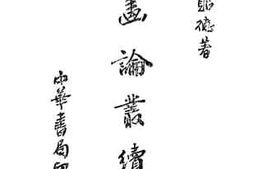 德著
畫論叢續
中華書局